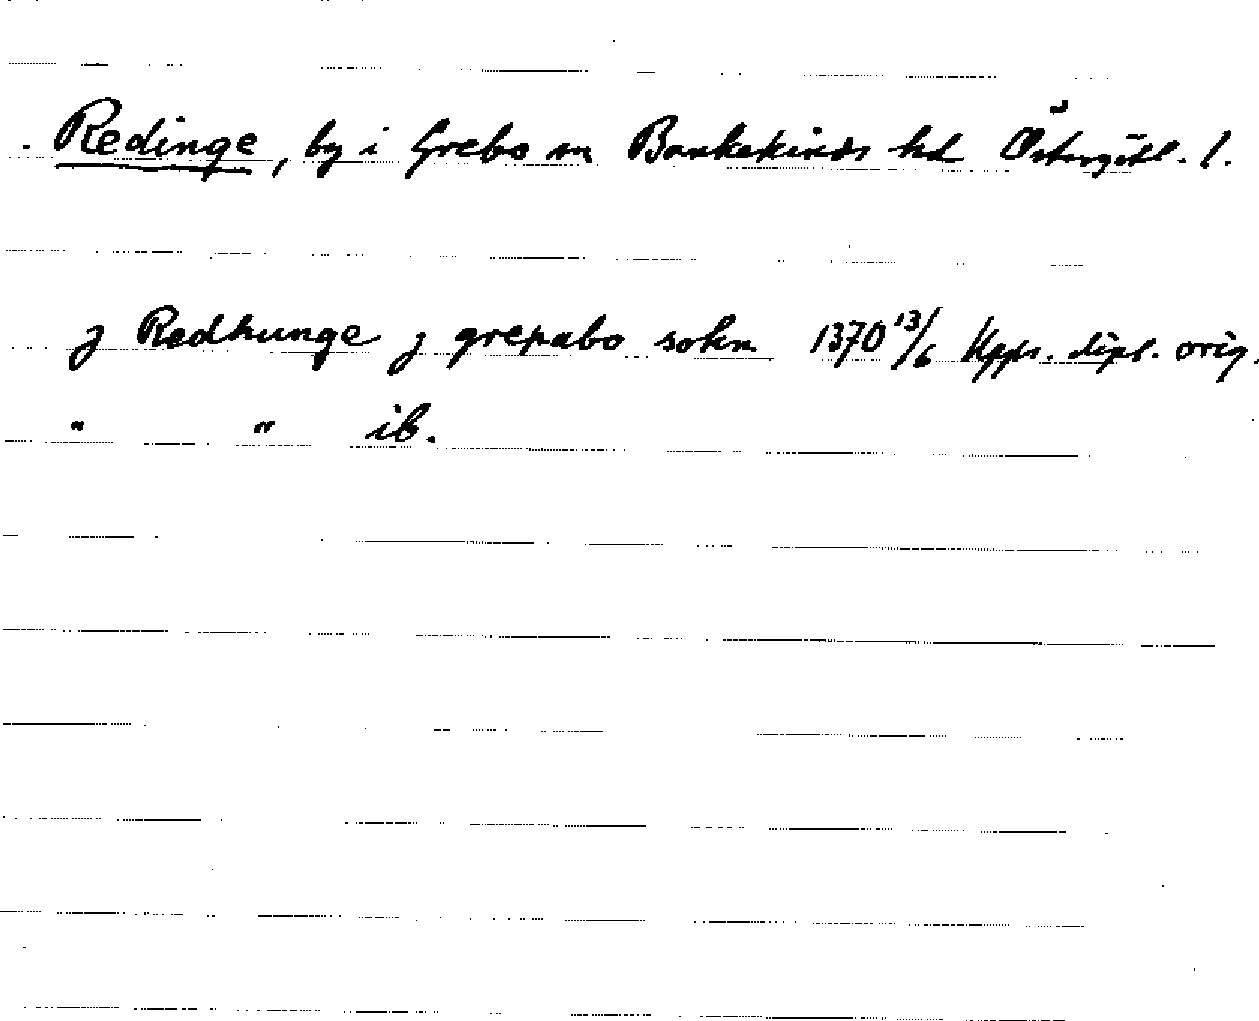 Redinge, by i Grebo sn Bankekinds hd Östergötl. l.
j Redhunge j grepabo sokn 1370 13/6 Upps. dipl. orig.
" " ib.